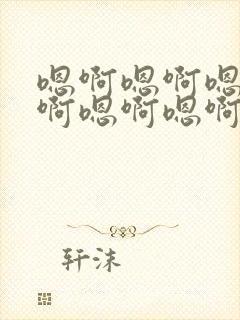 嗯啊嗯啊嗯
啊嗯啊嗯啊
轩沫